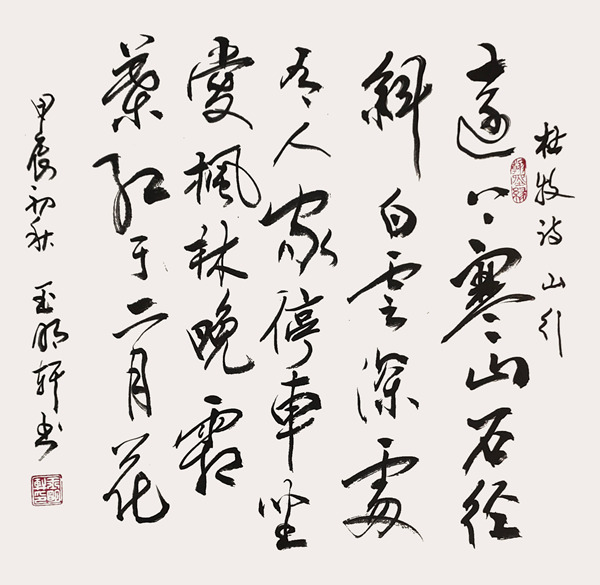 杜牧诗 山行
遠上寒山石径
斜白雲深處
有人家停車坐
愛楓林晚霜
葉红于二月花
甲辰初秋 玉明轩书